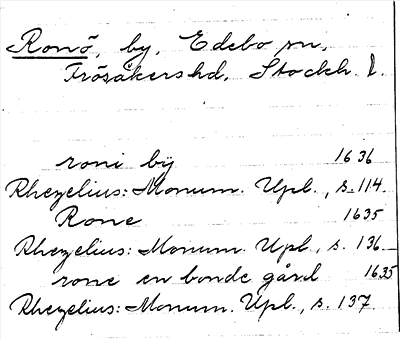 Ronö, by, Edebo sn,
Frösåkershd, Stockh. l.
roni by 1636
Rhezelius: Monum. Upl., s. 114.
Rone 1635
Rhezelius: Monum. Upl., s. 136
rone en bonde gård 1635
Rhezelius: Monum. Upl., s. 137.